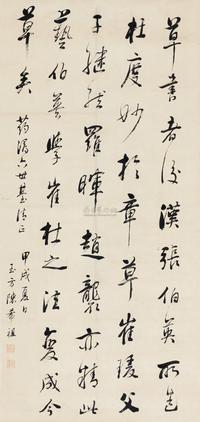 草書者後漢張伯英所造
杜度妙於章草崔瑗父
子繼能羅暉趙襲亦精此
藝伯英學崔杜之法變成今
草矣
六世 法正
甲戌夏日
玉方陳希祖